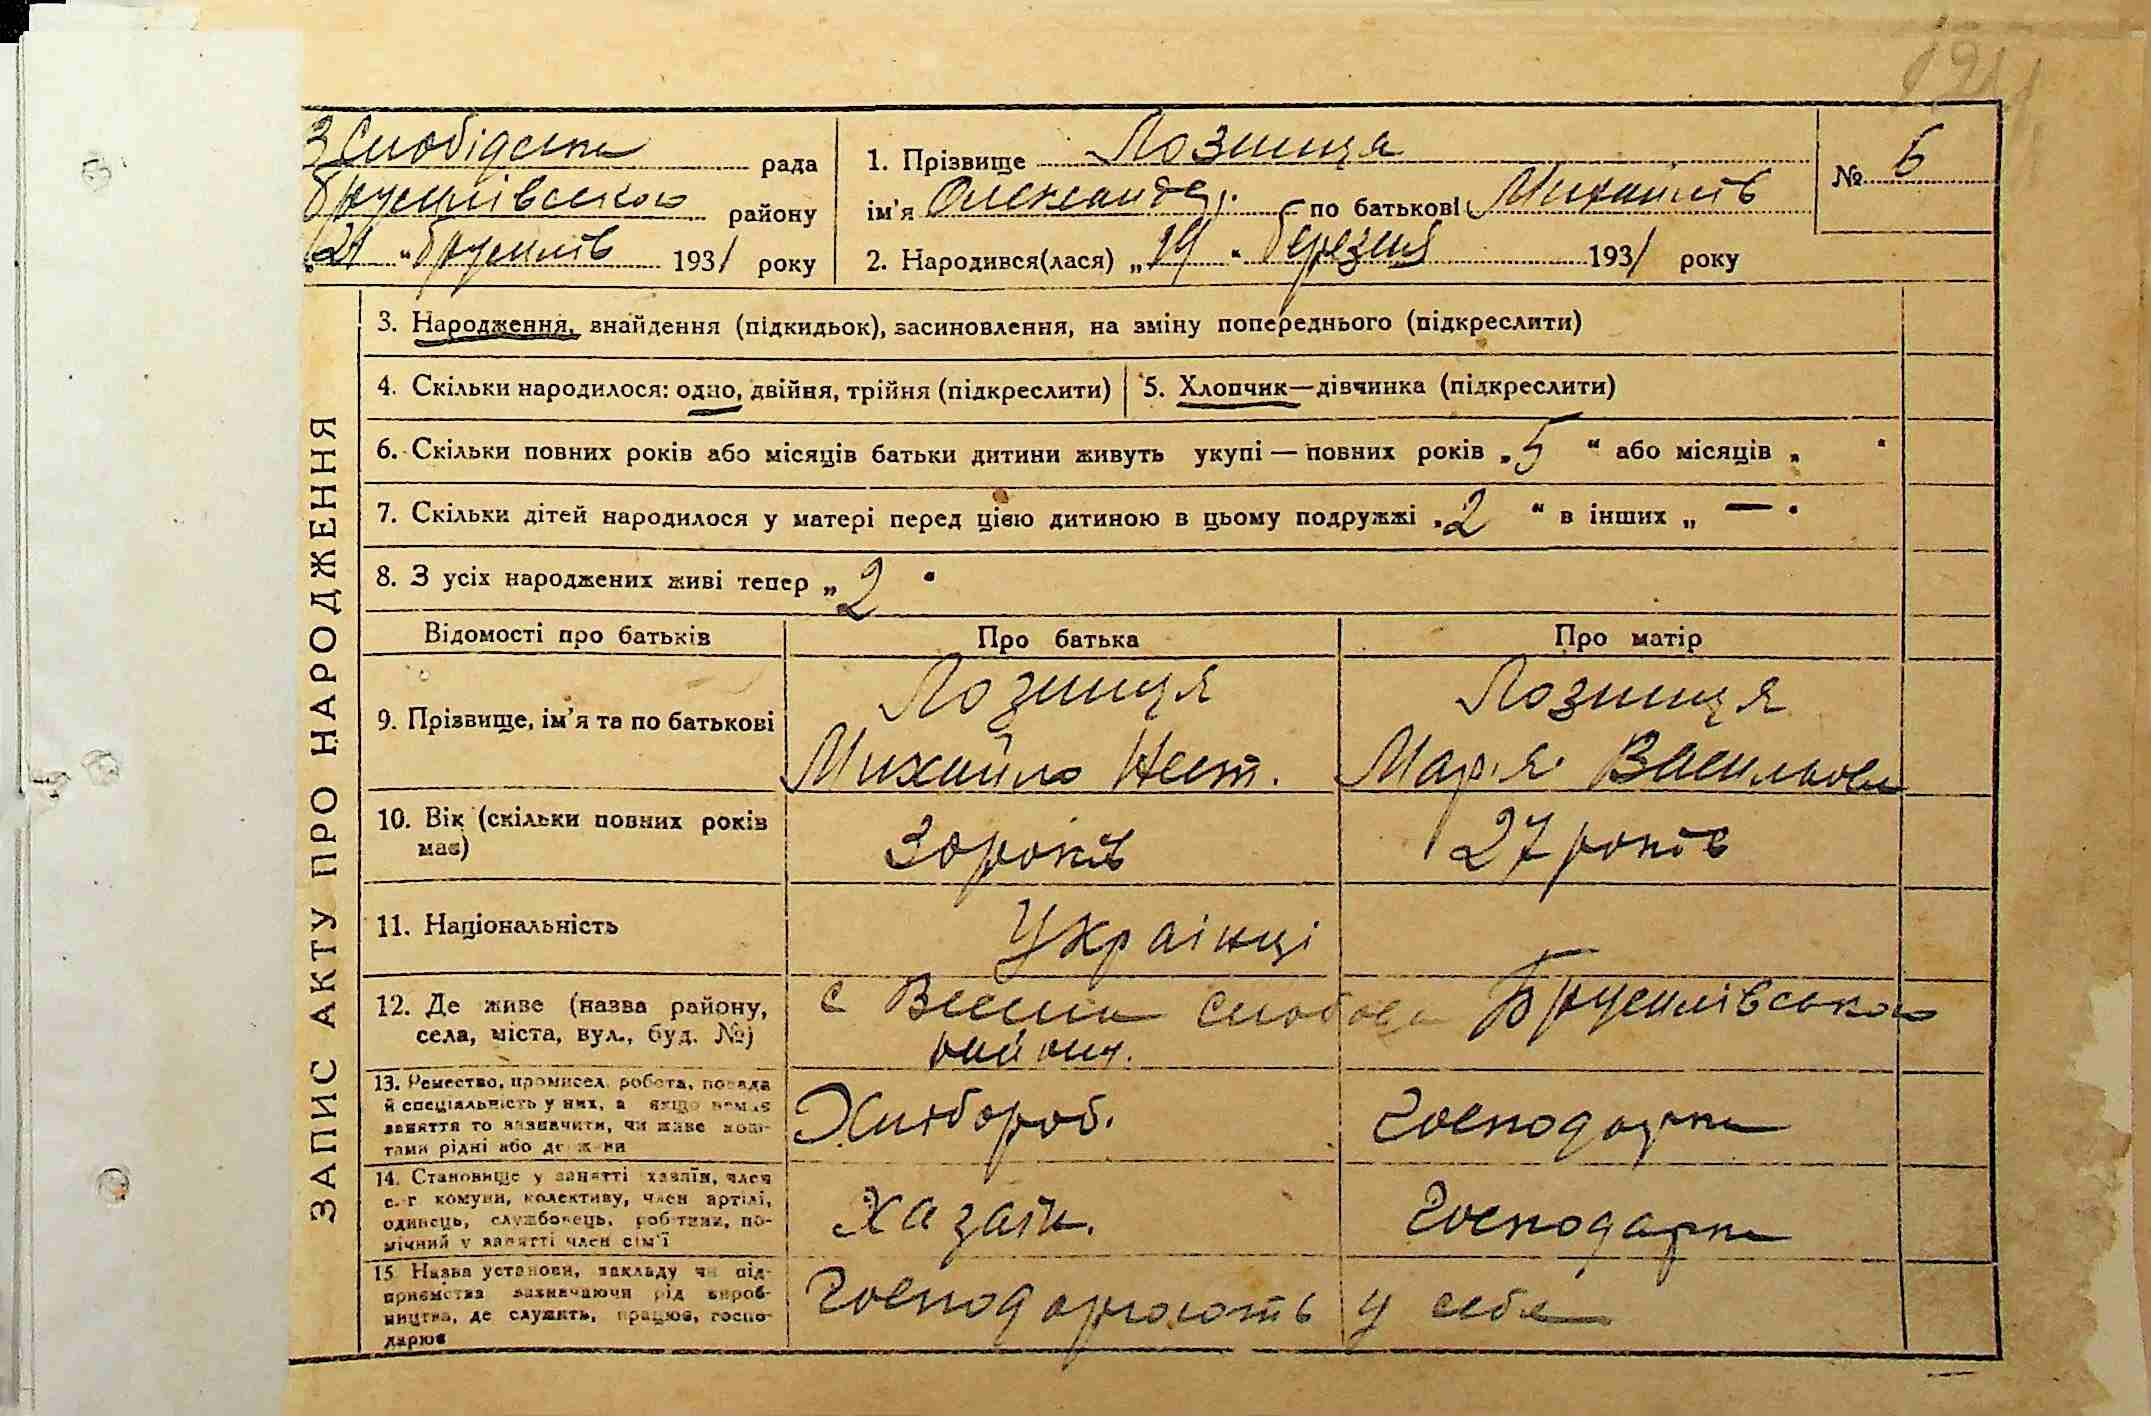 Слобідська рада
Брусилівського району
„21“ Брусилів 1931 року
1. Прізвище Лозниця
ім'я Олександр. по батькові Михайлів
2. Народився(лася) „19“ березня 1931 року
№ 6
ЗАПИС АКТУ ПРО НАРОДЖЕННЯ
3. Народження, знайдення (підкидьок), засиновлення, на зміну попереднього (підкреслити)
4. Скільки народилося: одно, двійня, трійня (підкреслити)
5. Хлопчик—дівчинка (підкреслити)
6. Скільки повних років або місяців батьки дитини живуть укупі — повних років „5“ або місяців „ “
7. Скільки дітей народилося у матері перед цією дитиною в цьому подружжі „2“ в інших „—“
8. З усіх народжених живі тепер „2“
Відомості про батьків Про батька Про матір
9. Прізвище, ім'я та по батькові
Лозниця
Михайло Нест.
Лозниця
Мар'я Василівна
10. Вік (скільки повних років
має)
30 років
27 років
11. Національність
Українці
12. Де живе (назва району,
села, міста, вул., буд. №)
с Слобода Брусилівського
району.
13. Ремество, промисел, робота, посада
й спеціяльність у них, а якщо немає
заняття то зазначити, чи живе кош-
тами рідні або держави
Хлібороб.
Господарка
14. Становище у занятті хазяїн, член
с.-г. комуни, колективу, член артілі,
одинець, службовець, робітник, по-
мічний у занятті член сім'ї
Хазаїн.
Господарка
15. Назва установи, закладу чи під-
приємства зазначаючи рід вироб-
ництва, де служить, працює, госпо-
дарює
Господарюють у себе